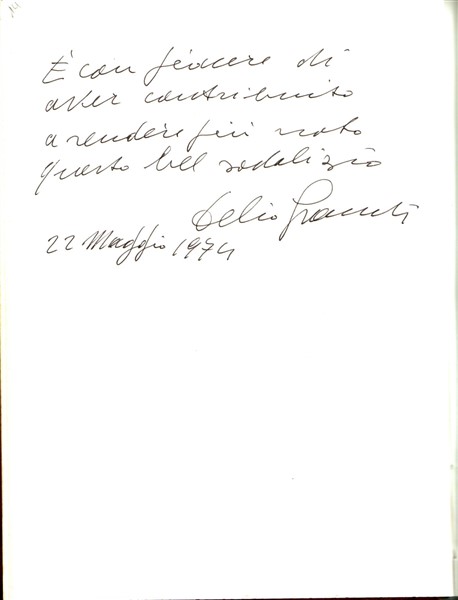 È con piacere di
aver contribuito
a rendere più noto
questo bel sodalizio
22 Maggio 1974